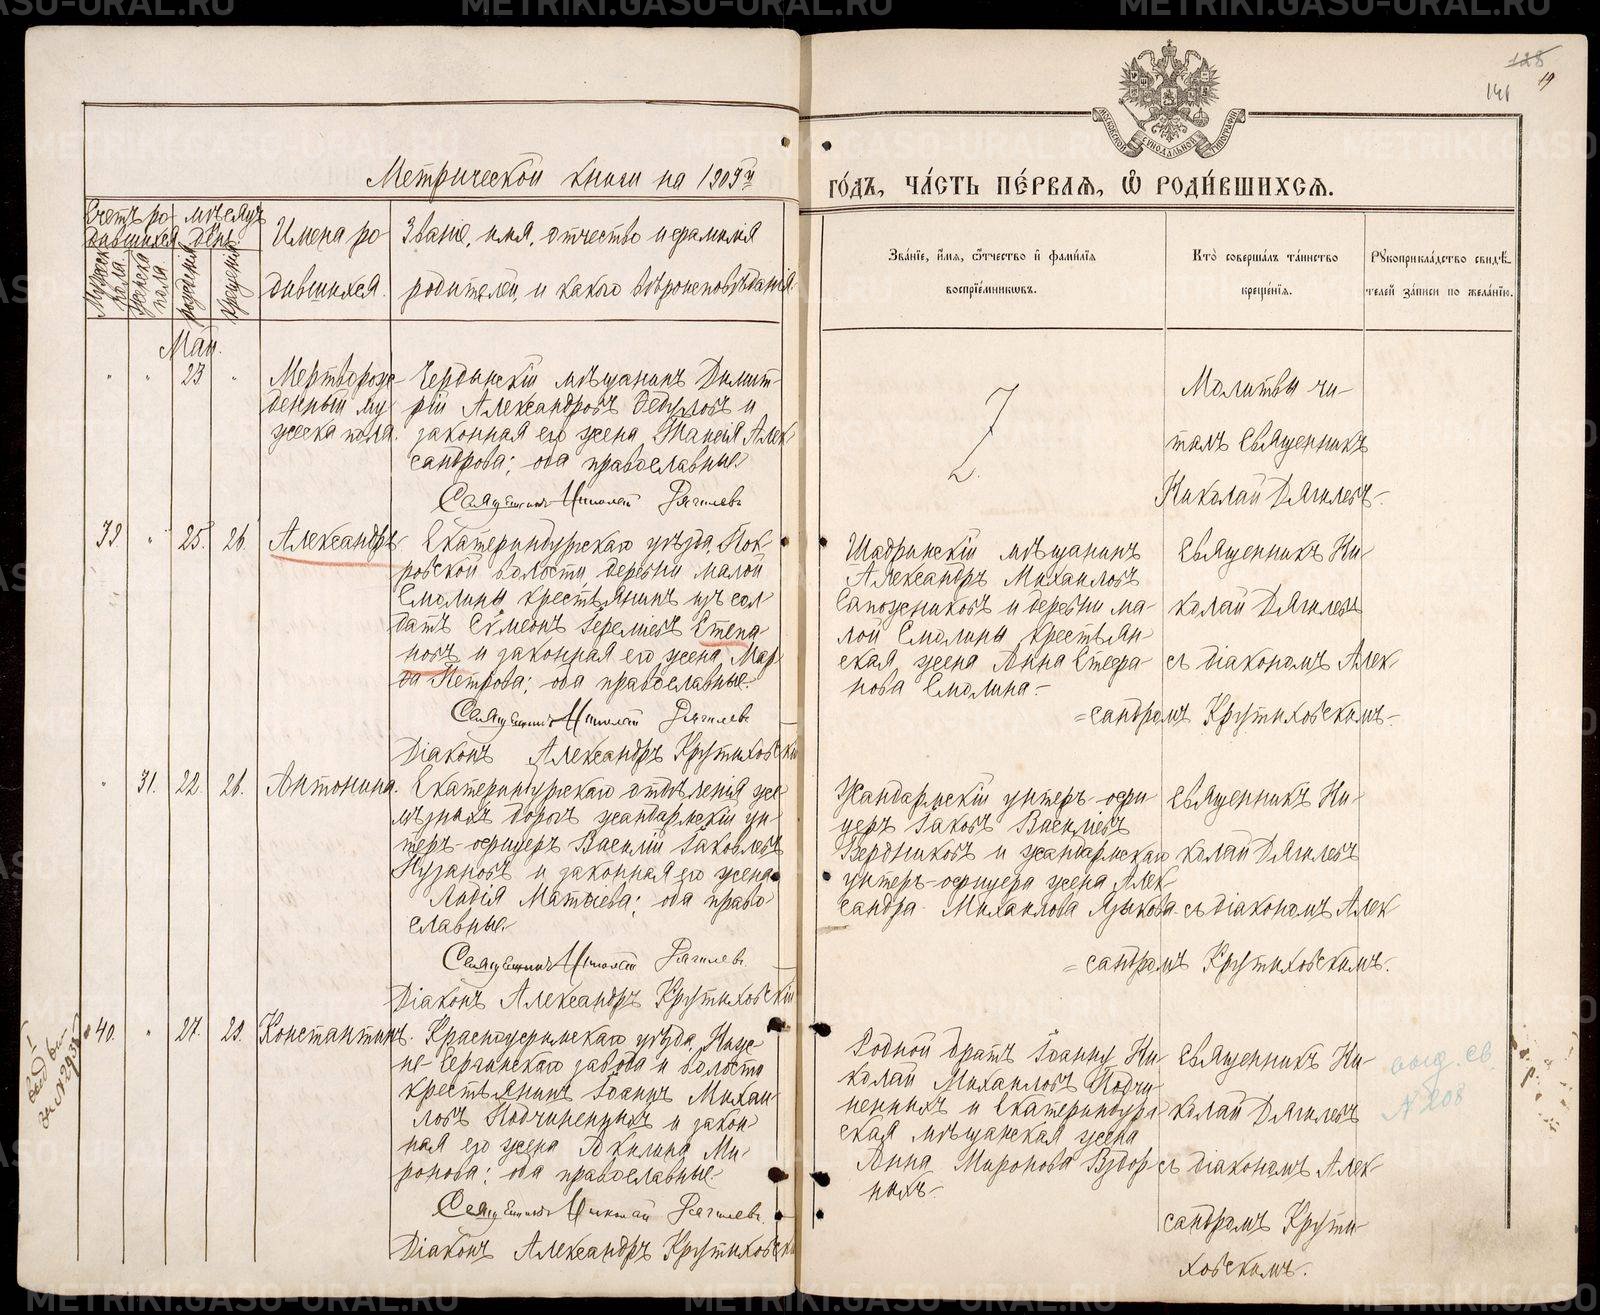 METRIKI.GASO-URAL.RU
128
19
141
МОСКОВСКОЙ СѴНОДАЛЬНОЙ ТИПОГРАФІИ
Метрической книги на 1909й
го́дъ, ча́сть пе́рвая, ѽ роди́вшихся.
Счетъ ро-
дившихся
Мужеска пола.
Женска пола
Мѣсяцъ
день
рожденія
крещенія
Имена ро
дившихся.
Званіе, имя, отчество и фамилія
родителей, и какого вѣроисповѣданія
Зва́нїе, и́мя, ѻ҆́тчество и҆ фами́лїя
воспрїе́мникѡвъ.
Кто̀ соверша́лъ та́инство
креще́нїя.
Рꙋкоприкла́дство свидѣ́-
телей за́писи по жела́нїю.
Май.
" " 23 "
Мертворож-
денный му
жеска пола.
Чердынскій мѣщанинъ Димит-
рій Александровъ Федуловъ и
законная его жена Таисія Алек-
сандрова; оба православные.
Священникъ Николай Дягилевъ
Молитвы чи-
талъ Священникъ
Николай Дягилевъ.-
39. " 25. 26.
Александръ.
Екатеринбургскаго уѣзда, Пок-
ровской волости, деревни малой
Смолины крестьянинъ изъ сол-
датъ Сѵмеонъ Іереміевъ Степа-
новъ и законная его жена Мар-
ѳа Петрова; оба православные.
Священникъ Николай Дягилевъ
Діаконъ Александръ Крутиховскій
Шадринскій мѣщанинъ
Александръ Михаиловъ
Сапожниковъ и деревни ма-
лой Смолины крестьян-
ская жена Анна Стефа-
нова Смолина.-
Священникъ Ни-
колай Дягилевъ
съ діакономъ Алек-
=сандромъ Крутиховскимъ.-
" 31. 22. 26.
Антонина.
Екатеринбургскаго отдѣленія же-
лѣзныхъ дорогъ жандармскій ун-
теръ-офицеръ Василій Іаковлевъ
Пузановъ и законная его жена
Лидія Матѳіева; оба право-
славные.
Священникъ Николай Дягилевъ
Діаконъ Александръ Крутиховскій
Жандармскій унтеръ-офи-
церъ Іаковъ Василіевъ
Вердниковъ и жандармскаго
унтеръ-офицера жена Алек-
сандра Михаилова Языкова.
Священникъ Ни-
колай Дягилевъ
съ діакономъ Алек
=сандромъ Крутиховскимъ.
40. " 27. 29.
Константинъ.
Красноуфимскаго уѣзда, Ниж-
не-Сергинскаго завода и волости
крестьянинъ Іоаннъ Михаи-
ловъ Подчиненныхъ и закон-
ная его жена Акилина Ми-
ронова; оба православные.
Священникъ Николай Дягилевъ.
Діаконъ Александръ Крутиховскій
Родной братъ Іоанну Ни-
колай Михаиловъ Подчи-
ненныхъ и Екатеринбург-
ская мѣщанская жена
Анна Миронова Вздор-
ныхъ.-
Священникъ Ни-
колай Дягилевъ
съ діакономъ Алек-
сандромъ Крути-
ховскимъ.
выд. св.
№ 208